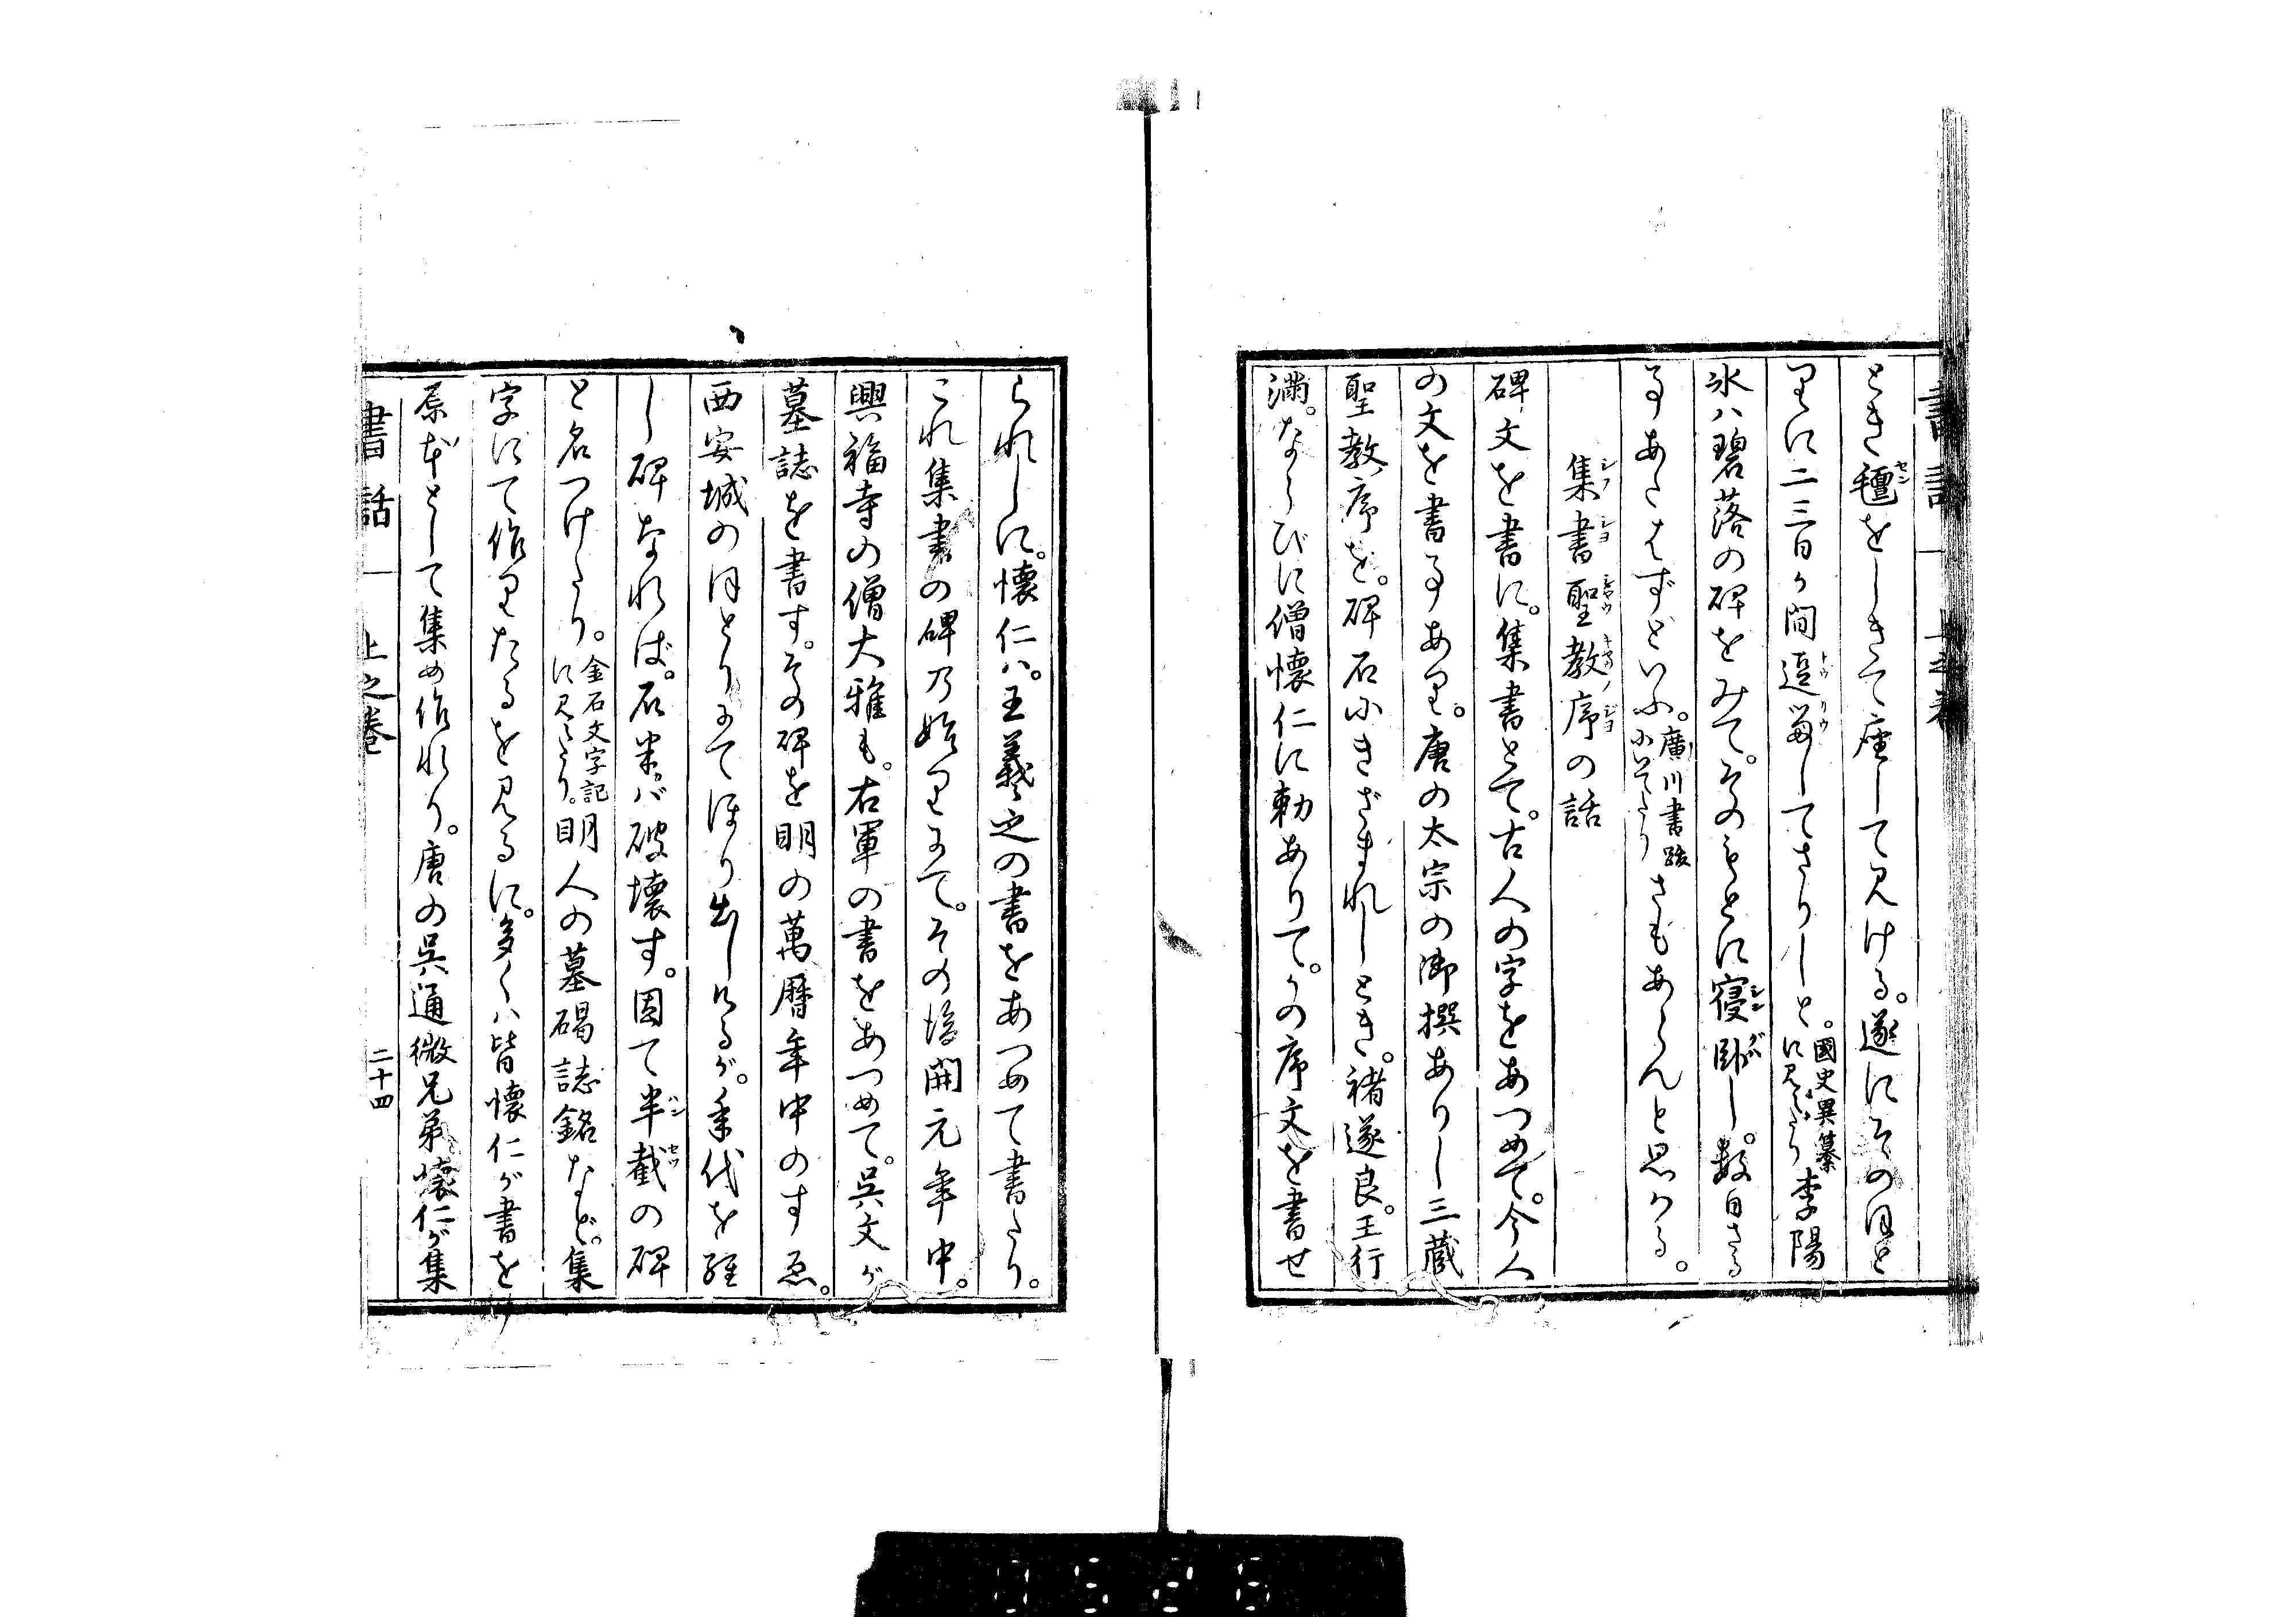 とき氊をしきて座して見ける。遂にそのほと
りに二三日か間逗畱してさりしと。國史異纂に見えたり李陽
氷ハ碧落の碑をみて。そのもとに寝臥し。数日さる
事あたはずといふ。廣川書跋に出たりさもあらんと思はる。
集書聖教序の話
碑文を書に。集書とて。古人の字をあつめて。今人
の文を書事あり。唐の太宗の御撰ありし三蔵
聖教序を。碑石にきざまれしとき。褚遂良。王行
満。ならびに僧懐仁に勅ありて。かの序文を書せ
られしに。懐仁ハ。王羲之の書をあつめて書たり。
これ集書の碑乃始りにて。その後開元年中。
興福寺の僧大雅も。右軍の書をあつめて。呉文が
墓誌を書す。その碑を明の萬暦年中のすゑ。
西安城のほとりにてほり出しけるが。年代を経
し碑なれば。石半バ破壊す。因て半截の碑
と名つけたり。金石文字記に見えたり。明人の墓碣誌銘など。集
字にて作りたるを見るに。多くハ皆懐仁が書を
原本として集め作れり。唐の呉通微兄弟懐仁が集
書話 上之巻 二十四